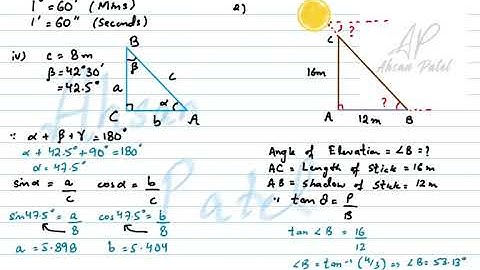 1° = 60' (Mins)
1' = 60'' (Seconds)
iv) c = 8m
β = 42°30'
= 42.5°
B
β
a
c
α
C
b
A
∵ α + β + γ = 180°
α + 42.5° + 90° = 180°
α = 47.5°
sinα = a/c cosα = b/c
sin47.5° = a/8 cos47.5° = b/8
a = 5.898 b = 5.404
2)
?
C
16m
?
A
12m
B
AP
Ahsan Patel
Ahsan
Patel
Angle of Elevation = ∠B = ?
AC = Length of Stick = 16m
AB = Shadow of Stick = 12m
∵ tan θ = P/B
tan ∠B = 16/12
∠B = tan⁻¹ (4/3) => ∠B = 53.13°